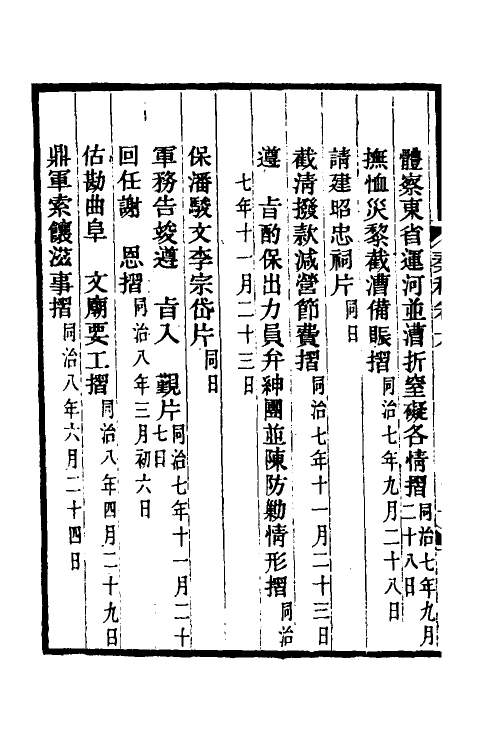 體察東省運河並漕折窒礙各情摺同治七年九月二十八日
撫恤災黎截漕備賑摺同治七年九月二十八日
請建昭忠祠片同日
截清撥款減營節費摺同治七年十一月二十三日
遵 旨酌保出力員弁紳團並陳防勦情形摺同治
七年十一月二十三日
保潘駿文李宗岱片同日
軍務告竣遵 旨入 覲片同治七年十一月二十七日
回任謝 恩摺同治八年三月初六日
估勘曲阜 文廟要工摺同治八年四月二十九日
鼎軍索饟滋事摺同治八年六月二十四日